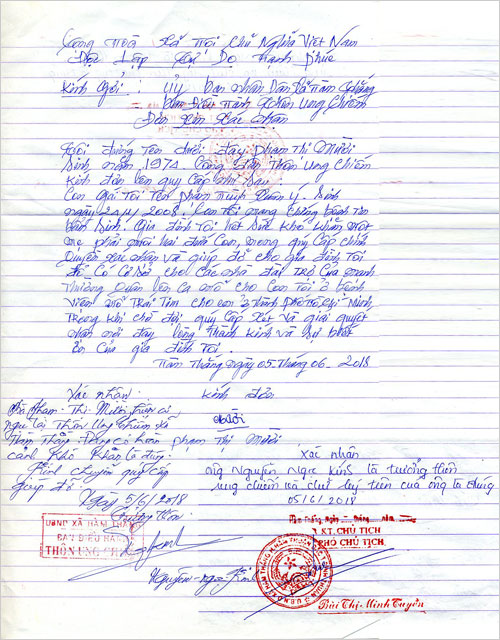 Cộng Hoà Xã Hội Chủ Nghĩa Việt Nam
Độc Lập Tự Do Hạnh Phúc
Kính Gởi: Uỷ ban nhân Dân Xã Hàm Thắng
ban Điều Hành Thôn Ung Chiếm
Đơn Xin Xác nhận
Tôi đứng tên dưới đây phạm Thị Mười
Sinh năm 1974 Công dân Thôn Ung Chiếm
Kính đơn lên quý Cấp như sau
Con gái Tôi Tên phạm Quân Ý. Sinh
ngày 2008. Con tôi mang Chứng bệnh tim
bẩm Sinh. Gia đình Tôi hết Sức khó khăn một
mẹ phải nuôi hai đứa Con, mong quý Cấp chính
quyền xác nhận và giúp đỡ cho gia đình Tôi
để Có Cơ Sở cho các nhà đài trợ Của mạnh
Thường quân lên Ca mổ cho Con Tôi ở bệnh
Viện Trái Tim cho con ở Thành phố Hồ Chí Minh,
Trong khi chờ đợi quý Cấp xét và giải quyết
nhận nơi đây lòng Thành kính và Sự biết
ơn Của gia đình Tôi.
Hàm Thắng ngày 05 Tháng 06. 2018
Xác nhận
Kính đơn
Bà Phạm Thị Mười hiện cư
ngụ tại Thôn Ung Chiếm xã
Mười
Hàm Thắng. Đang có hoàn
phạm Thị Mười
cảnh Khó Khăn là đúng.
Kính chuyển quý Cấp
giúp đỡ.
Ngày 5/6/2018
Trưởng thôn
Xác nhận
ông Nguyễn Ngọc Kính là trưởng thôn
Ung chiếm và chữ ký trên của ông là đúng
05/6/2018
UBND XÃ HÀM THẮNG
BAN ĐIỀU HÀNH
THÔN UNG CHIẾM
Nguyễn Ngọc Kính
Hàm Thắng, Ngày tháng năm
KT. CHỦ TỊCH
PHÓ CHỦ TỊCH
Bùi Thị Minh Tuyền